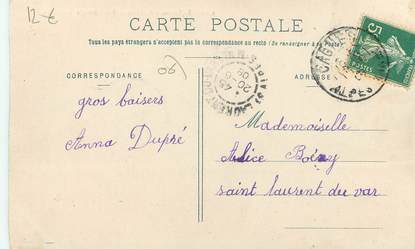 12 €
CARTE POSTALE
Tous les pays étrangers n'acceptent pas la correspondance au recto (Se renseigner à la Poste).
CORRESPONDANCE
06
ADRESSE
gros baisers
Anna Dupré
Mademoiselle
Alice
saint laurent du var
5
POSTES
ALPES